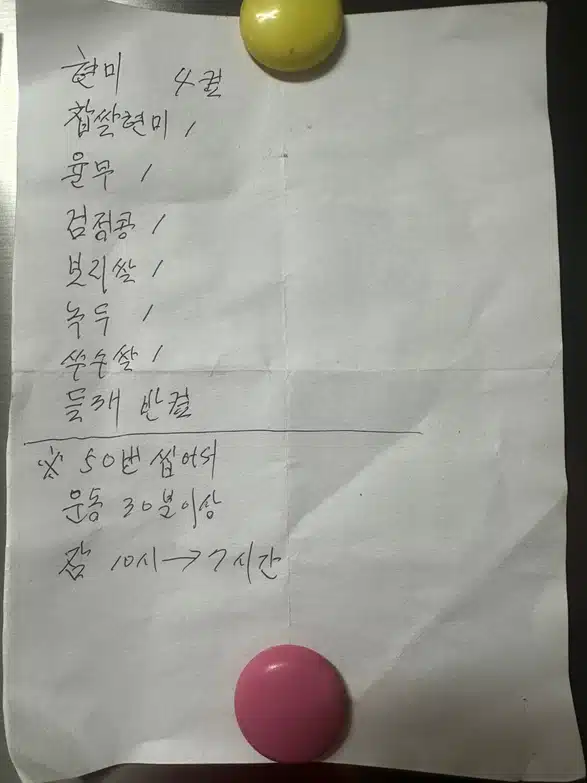 현미 4컵
찹쌀현미 1
율무 1
검정콩 1
보리쌀 1
녹두 1
쑤수쌀 1
들깨 반컵
※ 50번 씹어서
운동 30분이상
잠 10시→7시간